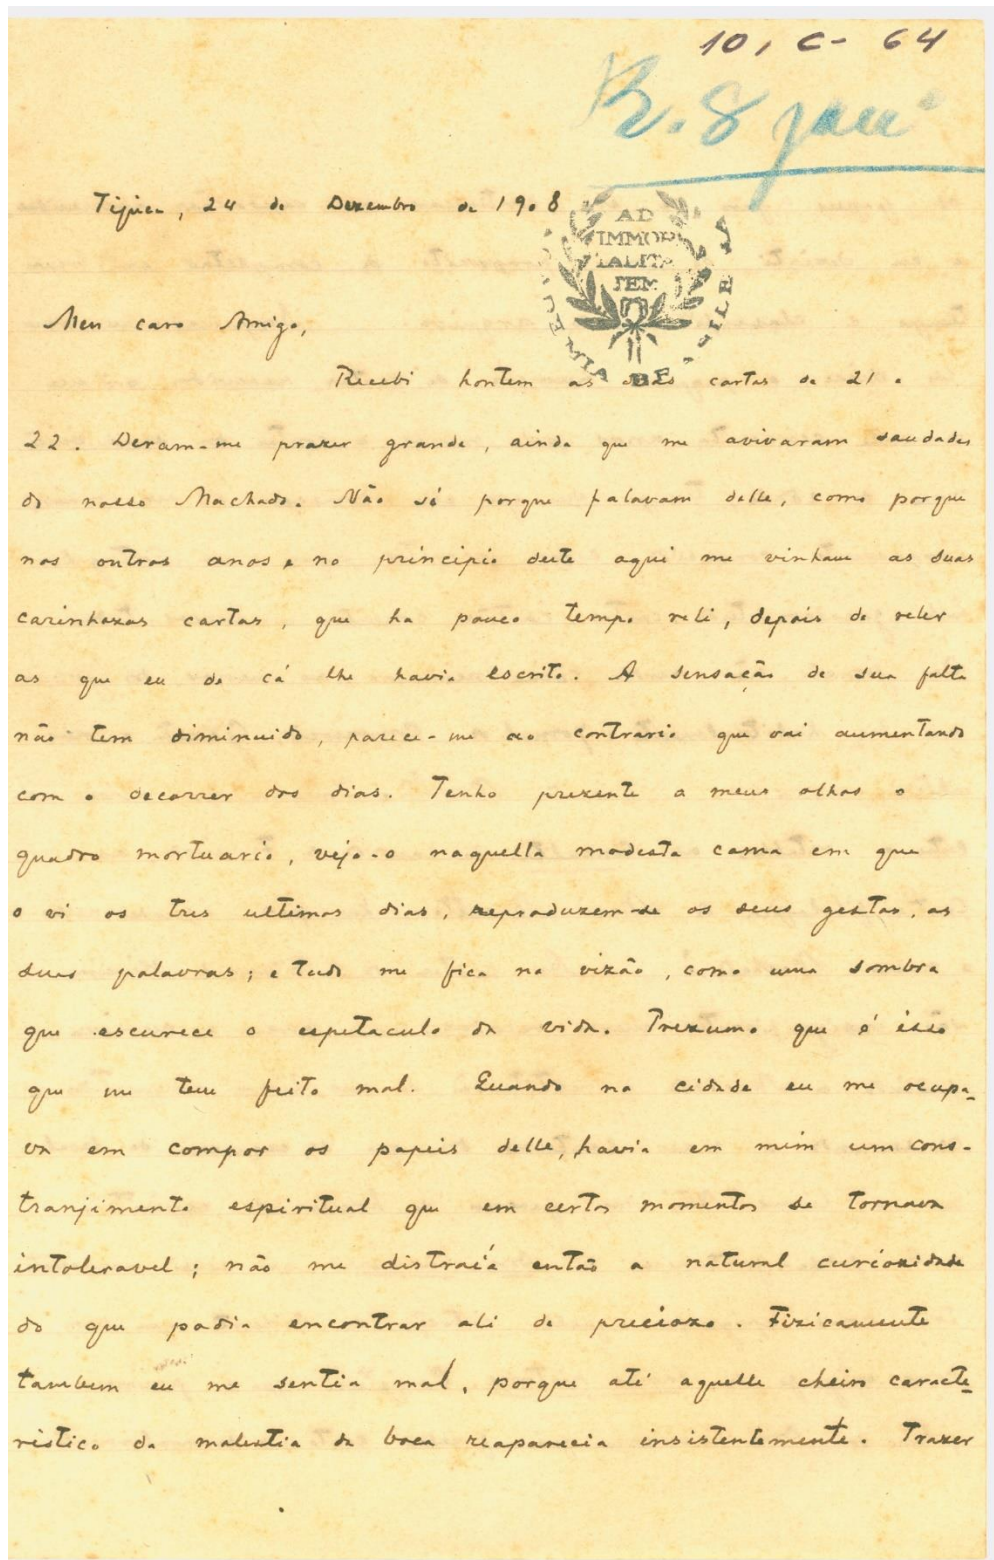 10, C- 64
R. 8 janº
Tijuca, 24 de Dezembro de 1908
AD
IMMOR
TALITA
TEM
Meu caro Amigo,
Recebi hontem as duas cartas de 21 e
22. Deram-me prazer grande, ainda que me avivaram saudades
do nosso Machado. Não só porque falavam delle, como porque
nos outros anos e no principio deste aqui me vinham as suas
carinhozas cartas, que ha pouco tempo reli, depois de reler
as que eu de cá lhe havia escrito. A sensação de sua falta
não tem diminuido, parece-me ao contrario que vai aumentando
com o decorrer dos dias. Tenho prezente a meus olhos o
quadro mortuario, vejo-o naquella modesta cama em que
o vi os tres ultimos dias, reproduzem-se os seus gestos, as
suas palavras; e tudo me fica na vizão, como uma sombra
que escurece o espetaculo da vida. Prezumo que é isso
que me tem feito mal. Quando na cidade eu me ocupa-
va em compor os papeis delle, havia em mim um cons-
tranjimento espiritual que em certos momentos se tornava
intoleravel; não me distraía então a natural curiozidade
do que podia encontrar ali de preciozo. Fizicamente
tambem eu me sentia mal, porque até aquelle cheiro caracte-
ristico da molestia da boca reaparecia insistentemente. Trazer